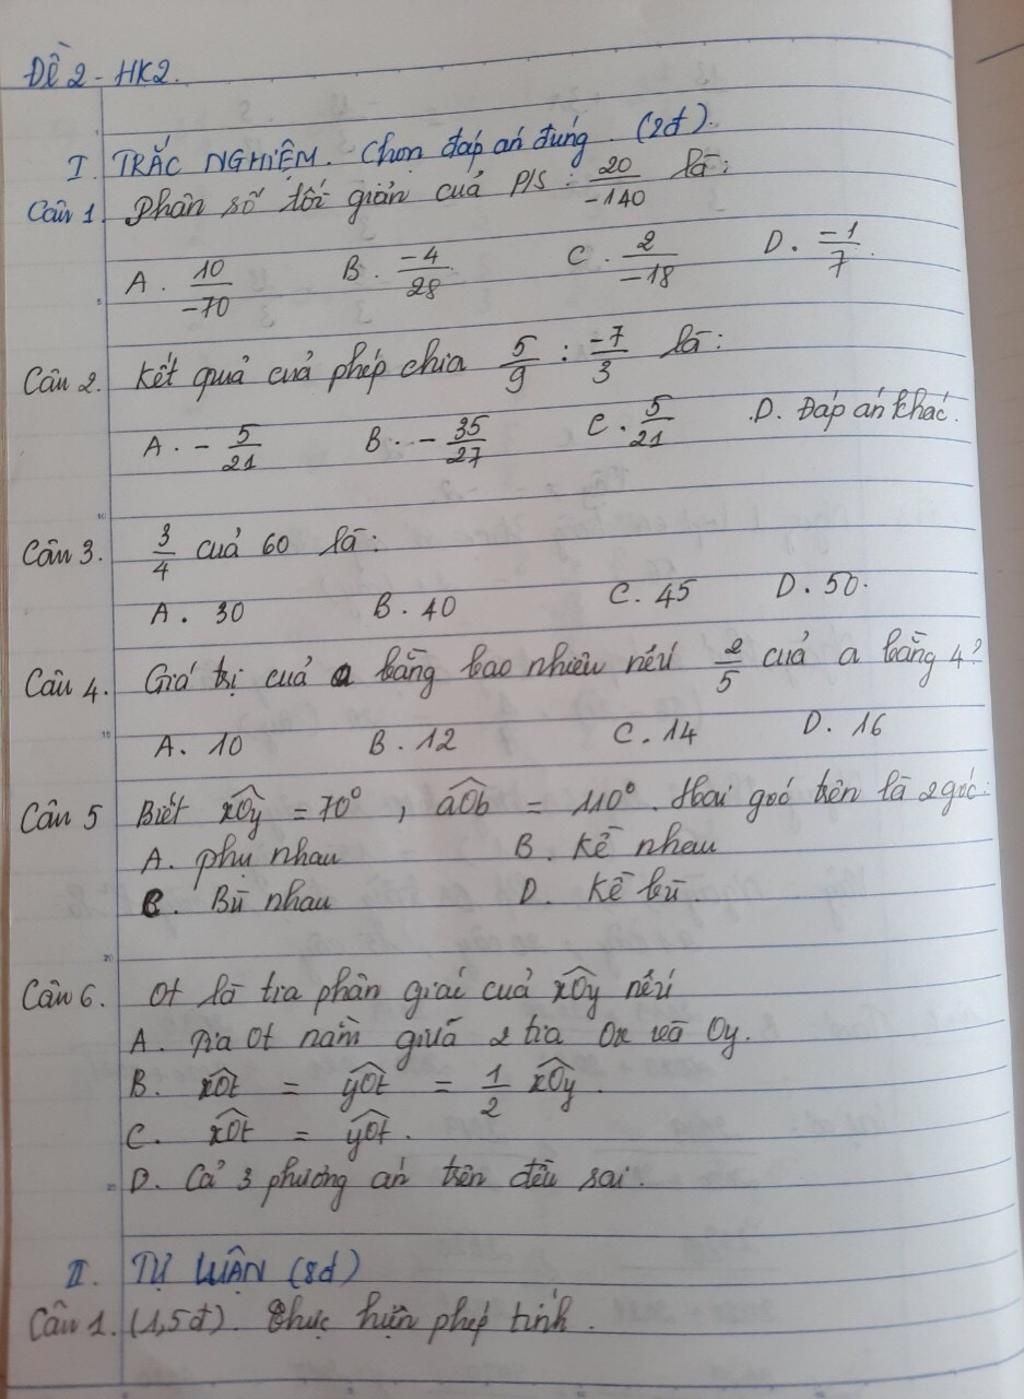 Đề 2 - HK2.
I. TRẮC NGHIỆM. Chọn đáp án đúng. (2đ).
Câu 1. Phân số tối giản của p/s : 20/-140 là:
A. 10/-70 B. -4/28 C. 2/-18 D. -1/7.
Câu 2. Kết quả của phép chia 5/9 : -7/3 là:
A. - 5/21 B. - 35/27 C. 5/21 D. Đáp án khác.
Câu 3. 3/4 của 60 là:
A. 30 B. 40 C. 45 D. 50.
Câu 4. Giá trị của a bằng bao nhiêu nếu 2/5 của a bằng 4?
A. 10 B. 12 C. 14 D. 16
Câu 5 Biết xOy = 70°, aOb = 110°. Hai góc trên là 2 góc:
A. phụ nhau B. Kề nhau
C. Bù nhau D. Kề bù.
Câu 6. Ot là tia phân giác của xOy nếu
A. Tia Ot nằm giữa 2 tia Ox và Oy.
B. xOt = yOt = 1/2 xOy.
C. xOt = yOt.
D. Cả 3 phương án trên đều sai.
II. TỰ LUẬN (8đ)
Câu 1. (1,5đ). Thực hiện phép tính.